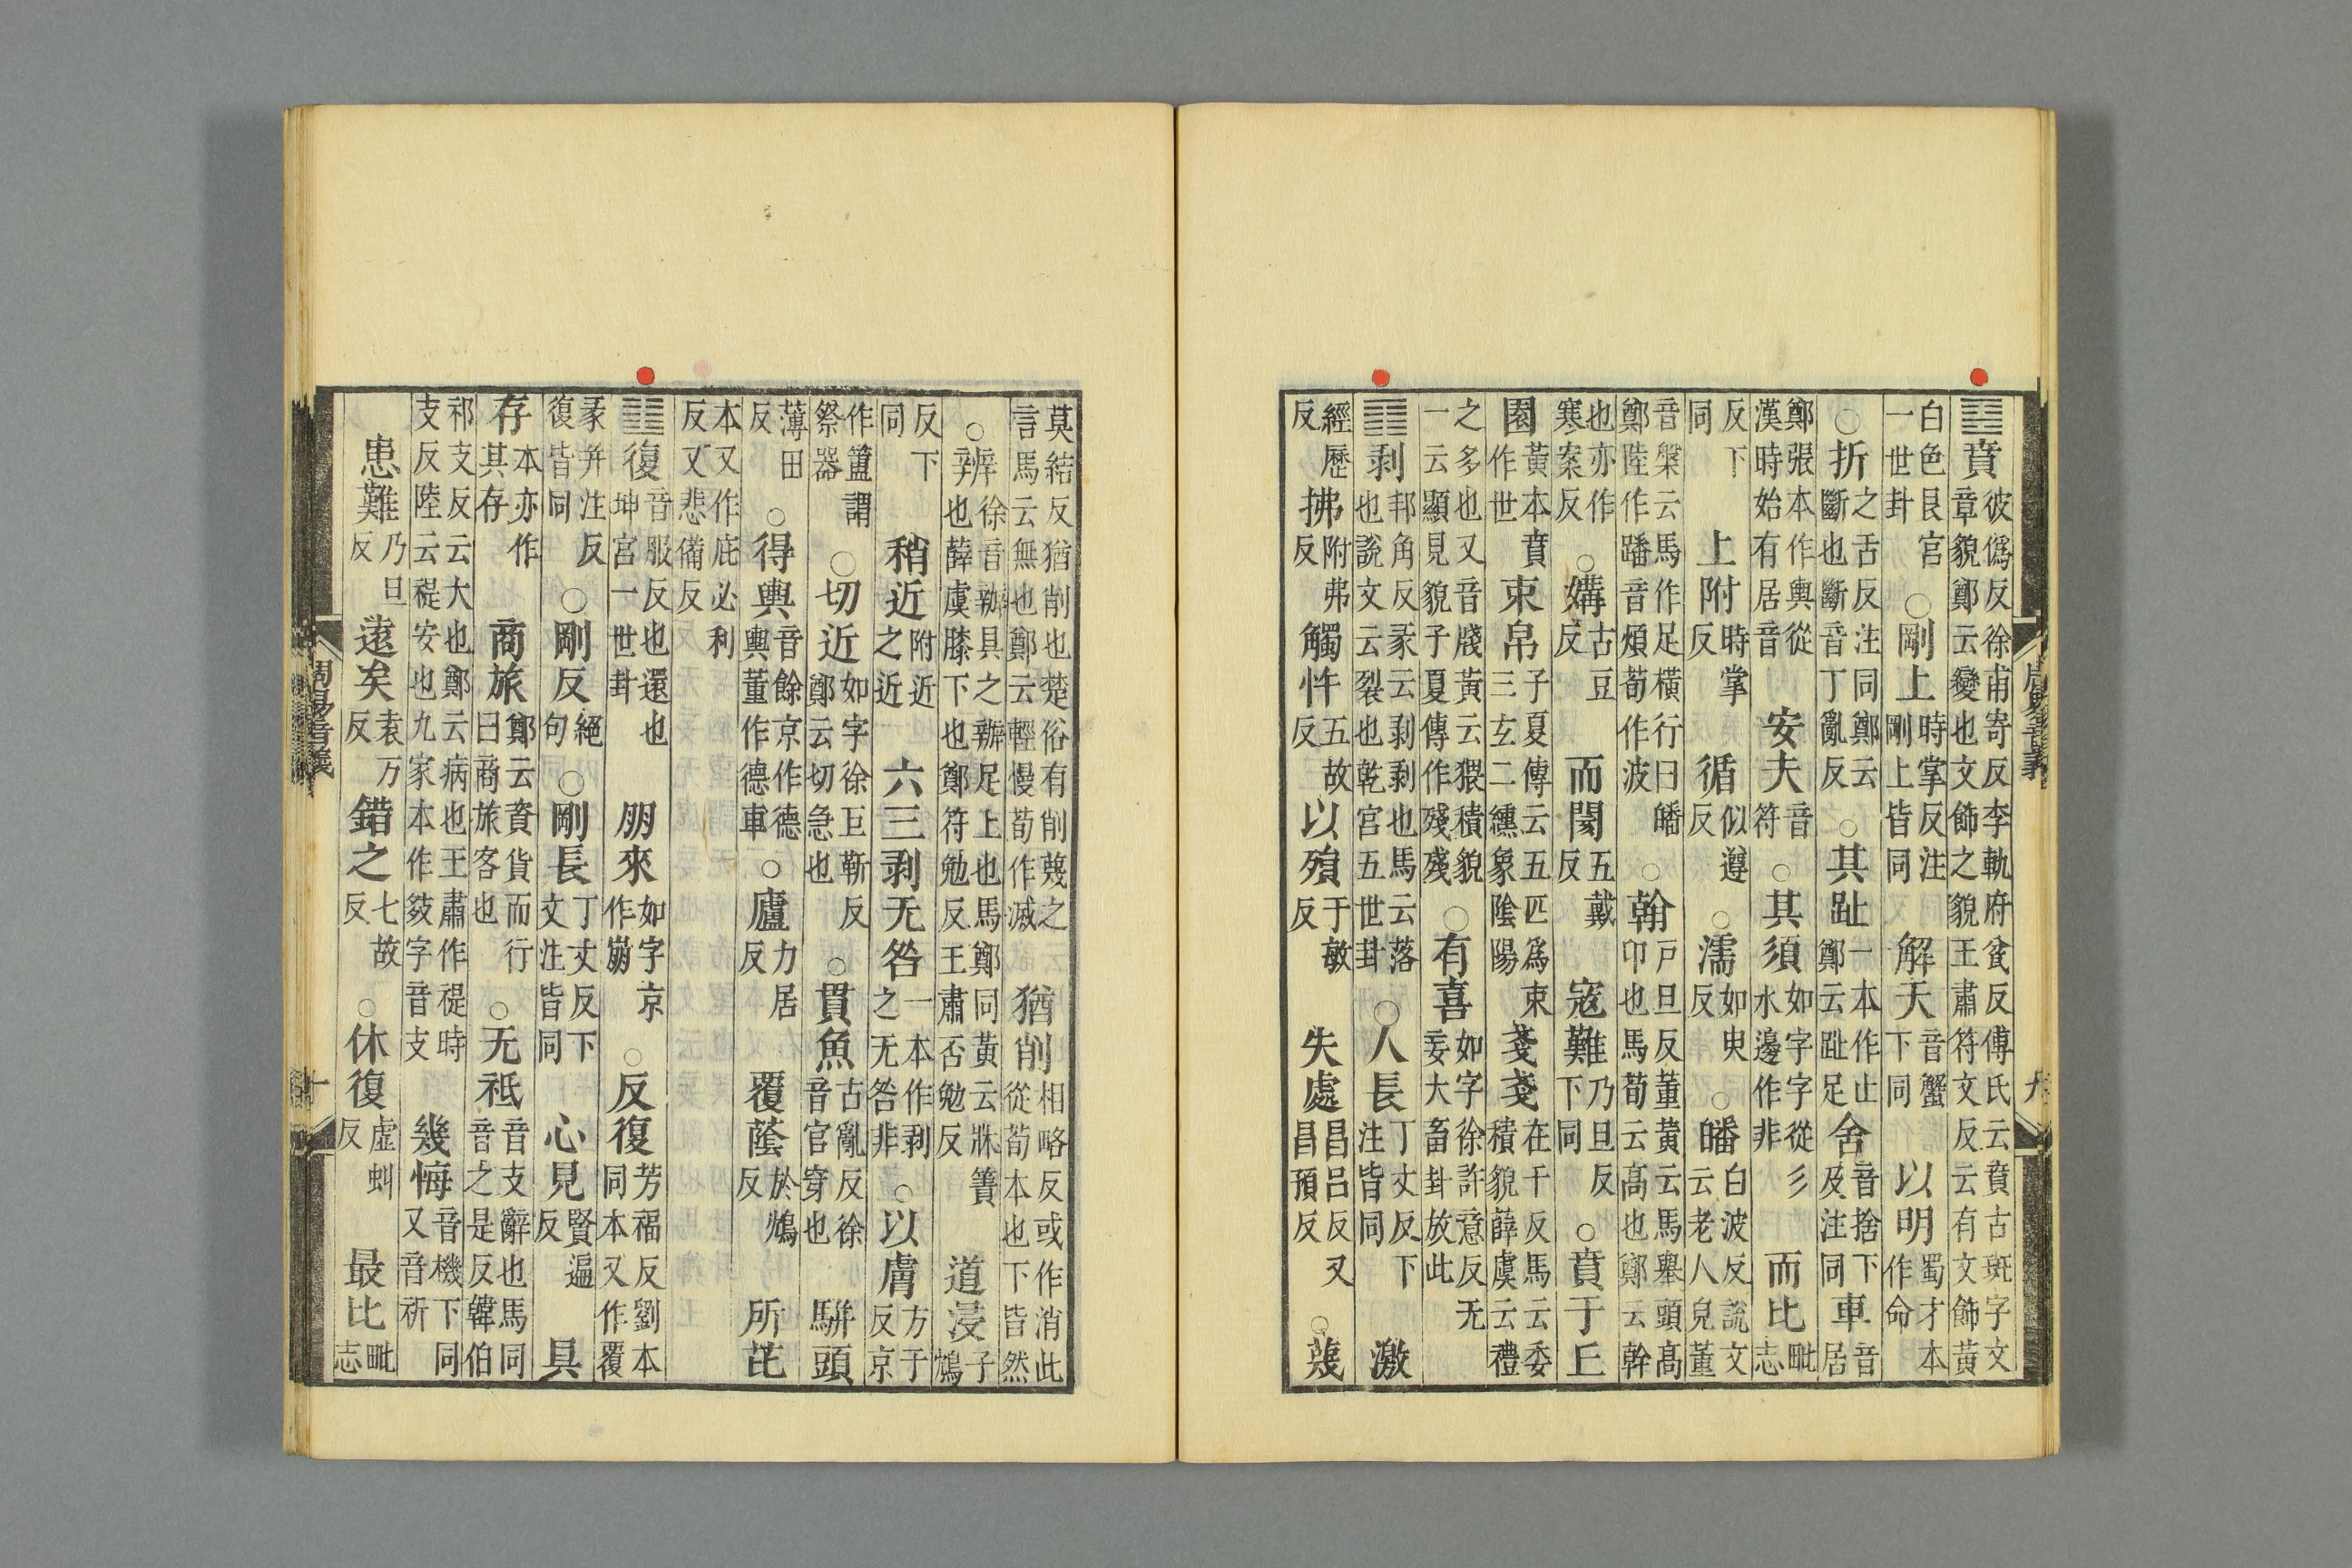 ䷕賁彼僞反徐甫寄反李軌府瓫反傅氏云賁古斑字文章貌鄭云變也文飾之貌王肅符文反云有文飾黃
白色艮宮一世卦○剛上時掌反注剛上皆同 解天音蟹下同 以明蜀才本作命
○折之舌反注同鄭云斷也斷音丁亂反○其趾一本作止鄭云趾足 舍音捨下及注同 車音居
鄭張本作輿從漢時始有居音 安夫音符○其須如字字從彡水邊作非 而比毗志
反下同 上附時掌反 循似遵反○濡如臾反○皤白波反說文云老人皃董
音槃云馬作足橫行曰皤鄭陸作蹯音煩荀作波○翰戶旦反董黃云馬舉頭高卬也馬荀云高也鄭云幹
也亦作寒案反○媾古豆反 而閡五戴反 寇難乃旦反下同○賁于丘
園黃本賁作世 束帛子夏傳云五匹爲束三玄二纁象陰陽 戔戔在千反馬云委積貌薛虞云禮
之多也又音牋黃云猥積貌一云顯見貌子夏傳作殘殘○有喜如字徐許意反无妄大畜卦放此
䷖剝邦角反彖云剝剝也馬云落也說文云裂也乾宮五世卦○人長丁丈反下注皆同 激
經歷反 拂附弗反 觸忤五故反 以殞于敏反 失處昌呂反又昌預反○蔑
周易音義 九
莫結反猶削也楚俗有削蔑之言馬云無也鄭云輕慢荀作滅 猶削相略反或作消此從荀本也下皆然
○辨徐音辦具之辦足上也馬鄭同黃云牀簀也薛虞膝下也鄭符勉反王肅否勉反 道浸子鴆
反下同 稍近附近之近 六三剝无咎一本作剝之无咎非○以膚方于反京
作簠謂祭器○切近如字徐巨靳反鄭云切急也○貫魚古亂反徐音官穿也 駢頭
薄田反○得輿音餘京作德輿董作德車○廬力居反 覆蔭於鴆反 所芘
本又作庇必利反又悲備反
䷗復音服反也還也坤宮一世卦 朋來如字京作崩○反復芳福反劉本同本又作覆
彖并注反復皆同○剛反絕句○剛長丁丈反下文注皆同 心見賢遍反 具
存本亦作其存 商旅鄭云資貨而行曰商旅客也○无祗音支辭也馬同音之是反韓伯
祁支反云大也鄭云病也王肅作禔時支反陸云禔安也九家本作㩼字音支 幾悔音機下同又音祈
患難乃旦反 遠矣袁万反 錯之七故反○休復虛虯反 最比毗志
周易音義 十